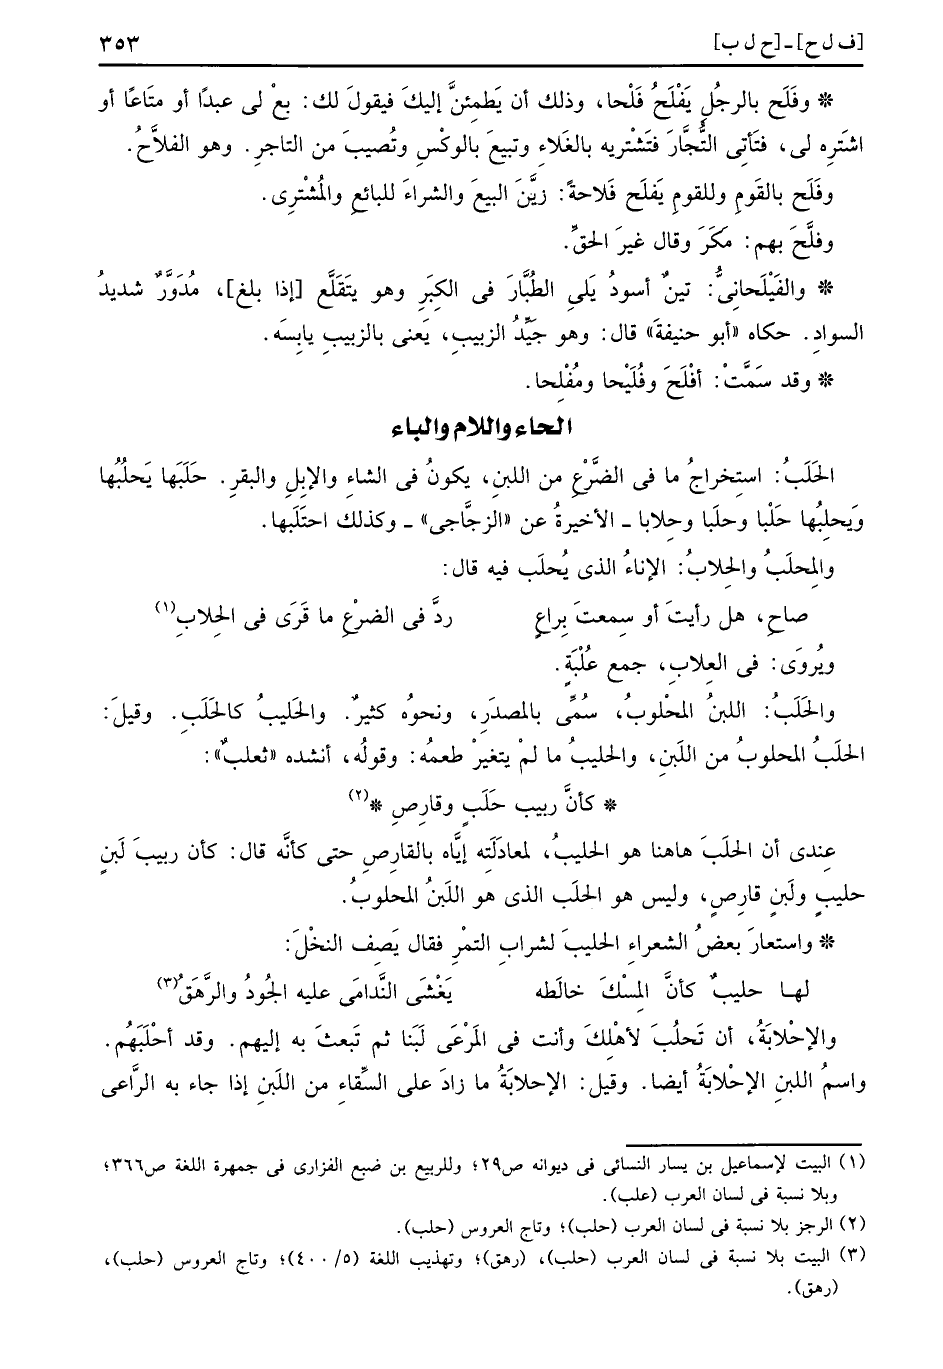 [ف ل ح] ـ [ح ل ب] ٣٥٣
* وفَلَح بالرجُلِ يَفْلَحُ فَلْحا، وذلك أن يَطمئنَّ إليكَ فيقولَ لك: بعْ لى عبدًا أو متَاعًا أو
اشتَرِه لى، فتَأتِى التُّجَّارَ فتَشْتريه بالغَلاءِ وتبيعَ بالوكْسِ وتُصيبَ من التاجرِ. وهو الفلاَّحُ.
وفَلَح بالقَومِ وللقومِ يَفلَح فَلاحةً: زيَّنَ البيعَ والشراءَ للبائعِ والمُشْترِى.
وفلَّحَ بهم: مَكَرَ وقال غيرَ الحقِّ.
* والفَيْلَحانىُّ: تينٌ أسودُ يَلِى الطُبَّارَ فى الكِبَرِ وهو يتَقَلَّع [إذا بلغ]، مُدَوَّرٌ شديدُ
السوادِ. حكاه «أبو حنيفةَ» قال: وهو جَيِّدُ الزبيبِ، يَعنى بالزبيبِ يابِسَه.
* وقد سَمَّتْ: أفْلَحَ وفُلَيْحا ومُفْلِحا.
الحاء واللام والباء
الحَلَبُ: استخراجُ ما فى الضَّرْعِ من اللبنِ، يكونُ فى الشاءِ والإبلِ والبقرِ. حَلَبَها يَحلُبُها
ويَحلِبُها حَلْبا وحلَبا وحِلابا ـ الأخيرةُ عن «الزجَّاجى» ـ وكذلك احتَلَبها.
والمِحلَبُ والحِلابُ: الإناءُ الذى يُحلَب فيه قال:
صاحِ، هل رأيتَ أو سِمعتَ بِراعٍ ردَّ فى الضرْعِ ما قَرَى فى الحِلابِ(١)
ويُروَى: فى العِلابِ، جمع عُلْبَةٍ.
والحَلَبُ: اللبنُ المحْلوبُ، سُمِّى بالمصدَرِ، ونحوُه كثيرٌ. والحَليبُ كالحَلَبِ. وقيلَ:
الحلَبُ المحلوبُ من اللَبَنِ، والحليبُ ما لمْ يتغيرْ طعمُه: وقولُه، أنشده «ثعلبٌ»:
* كأنَّ ربيب حَلَبٍ وقارِصِ *(٢)
عِندى أن الحلَبَ هاهنا هو الحليبُ، لمعادَلَتِه إيَّاه بالقارِصِ حتى كأنَّه قال: كأن ربيبَ لَبنٍ
حليبٍ ولَبنٍ قارِصٍ، وليس هو الحلَب الذى هو اللبَنُ المحلوبُ.
* واستعارَ بعضُ الشعراءِ الحليبَ لشرابِ التمْرِ فقال يَصِف النخْلَ:
لهـا حليبٌ كأنَّ المِسْكَ خالَطه يَغْشَى النَّدامَى عليه الجُودُ والرَّهَقُ(٣)
والإحْلابَةُ، أن تَحلُبَ لأهْلِكَ وأنت فى المَرْعَى لَبَنا ثم تَبعثَ به إليهم. وقد أحْلَبَهُم.
واسمُ اللبنِ الإحْلابَةُ أيضا. وقيل: الإحلابَةُ ما زادَ على السِّقاءِ من اللَبنِ إذا جاء به الرَّاعى
(١) البيت لإسماعيل بن يسار النسائى فى ديوانه ص٢٩؛ وللربيع بن ضبع الفزارى فى جمهرة اللغة ص٣٦٦؛
وبلا نسبة فى لسان العرب (علب).
(٢) الرجز بلا نسبة فى لسان العرب (حلب)؛ وتاج العروس (حلب).
(٣) البيت بلا نسبة فى لسان العرب (حلب)، (رهق)؛ وتهذيب اللغة (٥/ ٤٠٠)؛ وتاج العروس (حلب)،
(رهق).